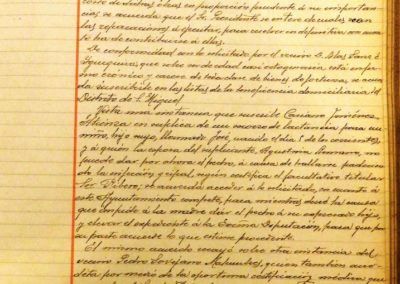 costo de dichas obras en proporción prudente á su importan-
cia, se acuerda que el Sr. Presidente se entere de cuales sean
las reparaciones á ejecutar, para resolver en definitiva con
te ha de contribuirse á ellas.
De conformidad con lo solicitado por el vecino D. Blas
que sobre ser de edad casi octogenaria está enfer-
mo crónico y carece de toda clase de bienes de fortuna, se acuer-
da inscribirle en las listas de la beneficencia domiciliaria, del
Distrito de S. Miguel.
Vista una instancia que suscribe Casiano Jiménez
en súplica de un socorro de lactancia para un
niño, hijo suyo, llamado José, nacido el día 5 de los corrientes,
y á quien la esposa del suplicante, Agustina Romero, no
puede dar por ahora el pecho, á causa de hallarse padecien-
do la infección según certifica el facultativo titular
Sor. se acuerda acceder á lo solicitado, en cuanto á
este Ayuntamiento compete, para mientras dure la causa
que impide á la madre dar el pecho á su expresado hijo,
y elevar el expediente á la Excma. Diputación, para que por
su parte acuerde lo que estime procedente.
El mismo acuerdo recayó sobre otra instancia del
vecino Pedro quien también acre-
dita por medio de la oportuna certificación médica que